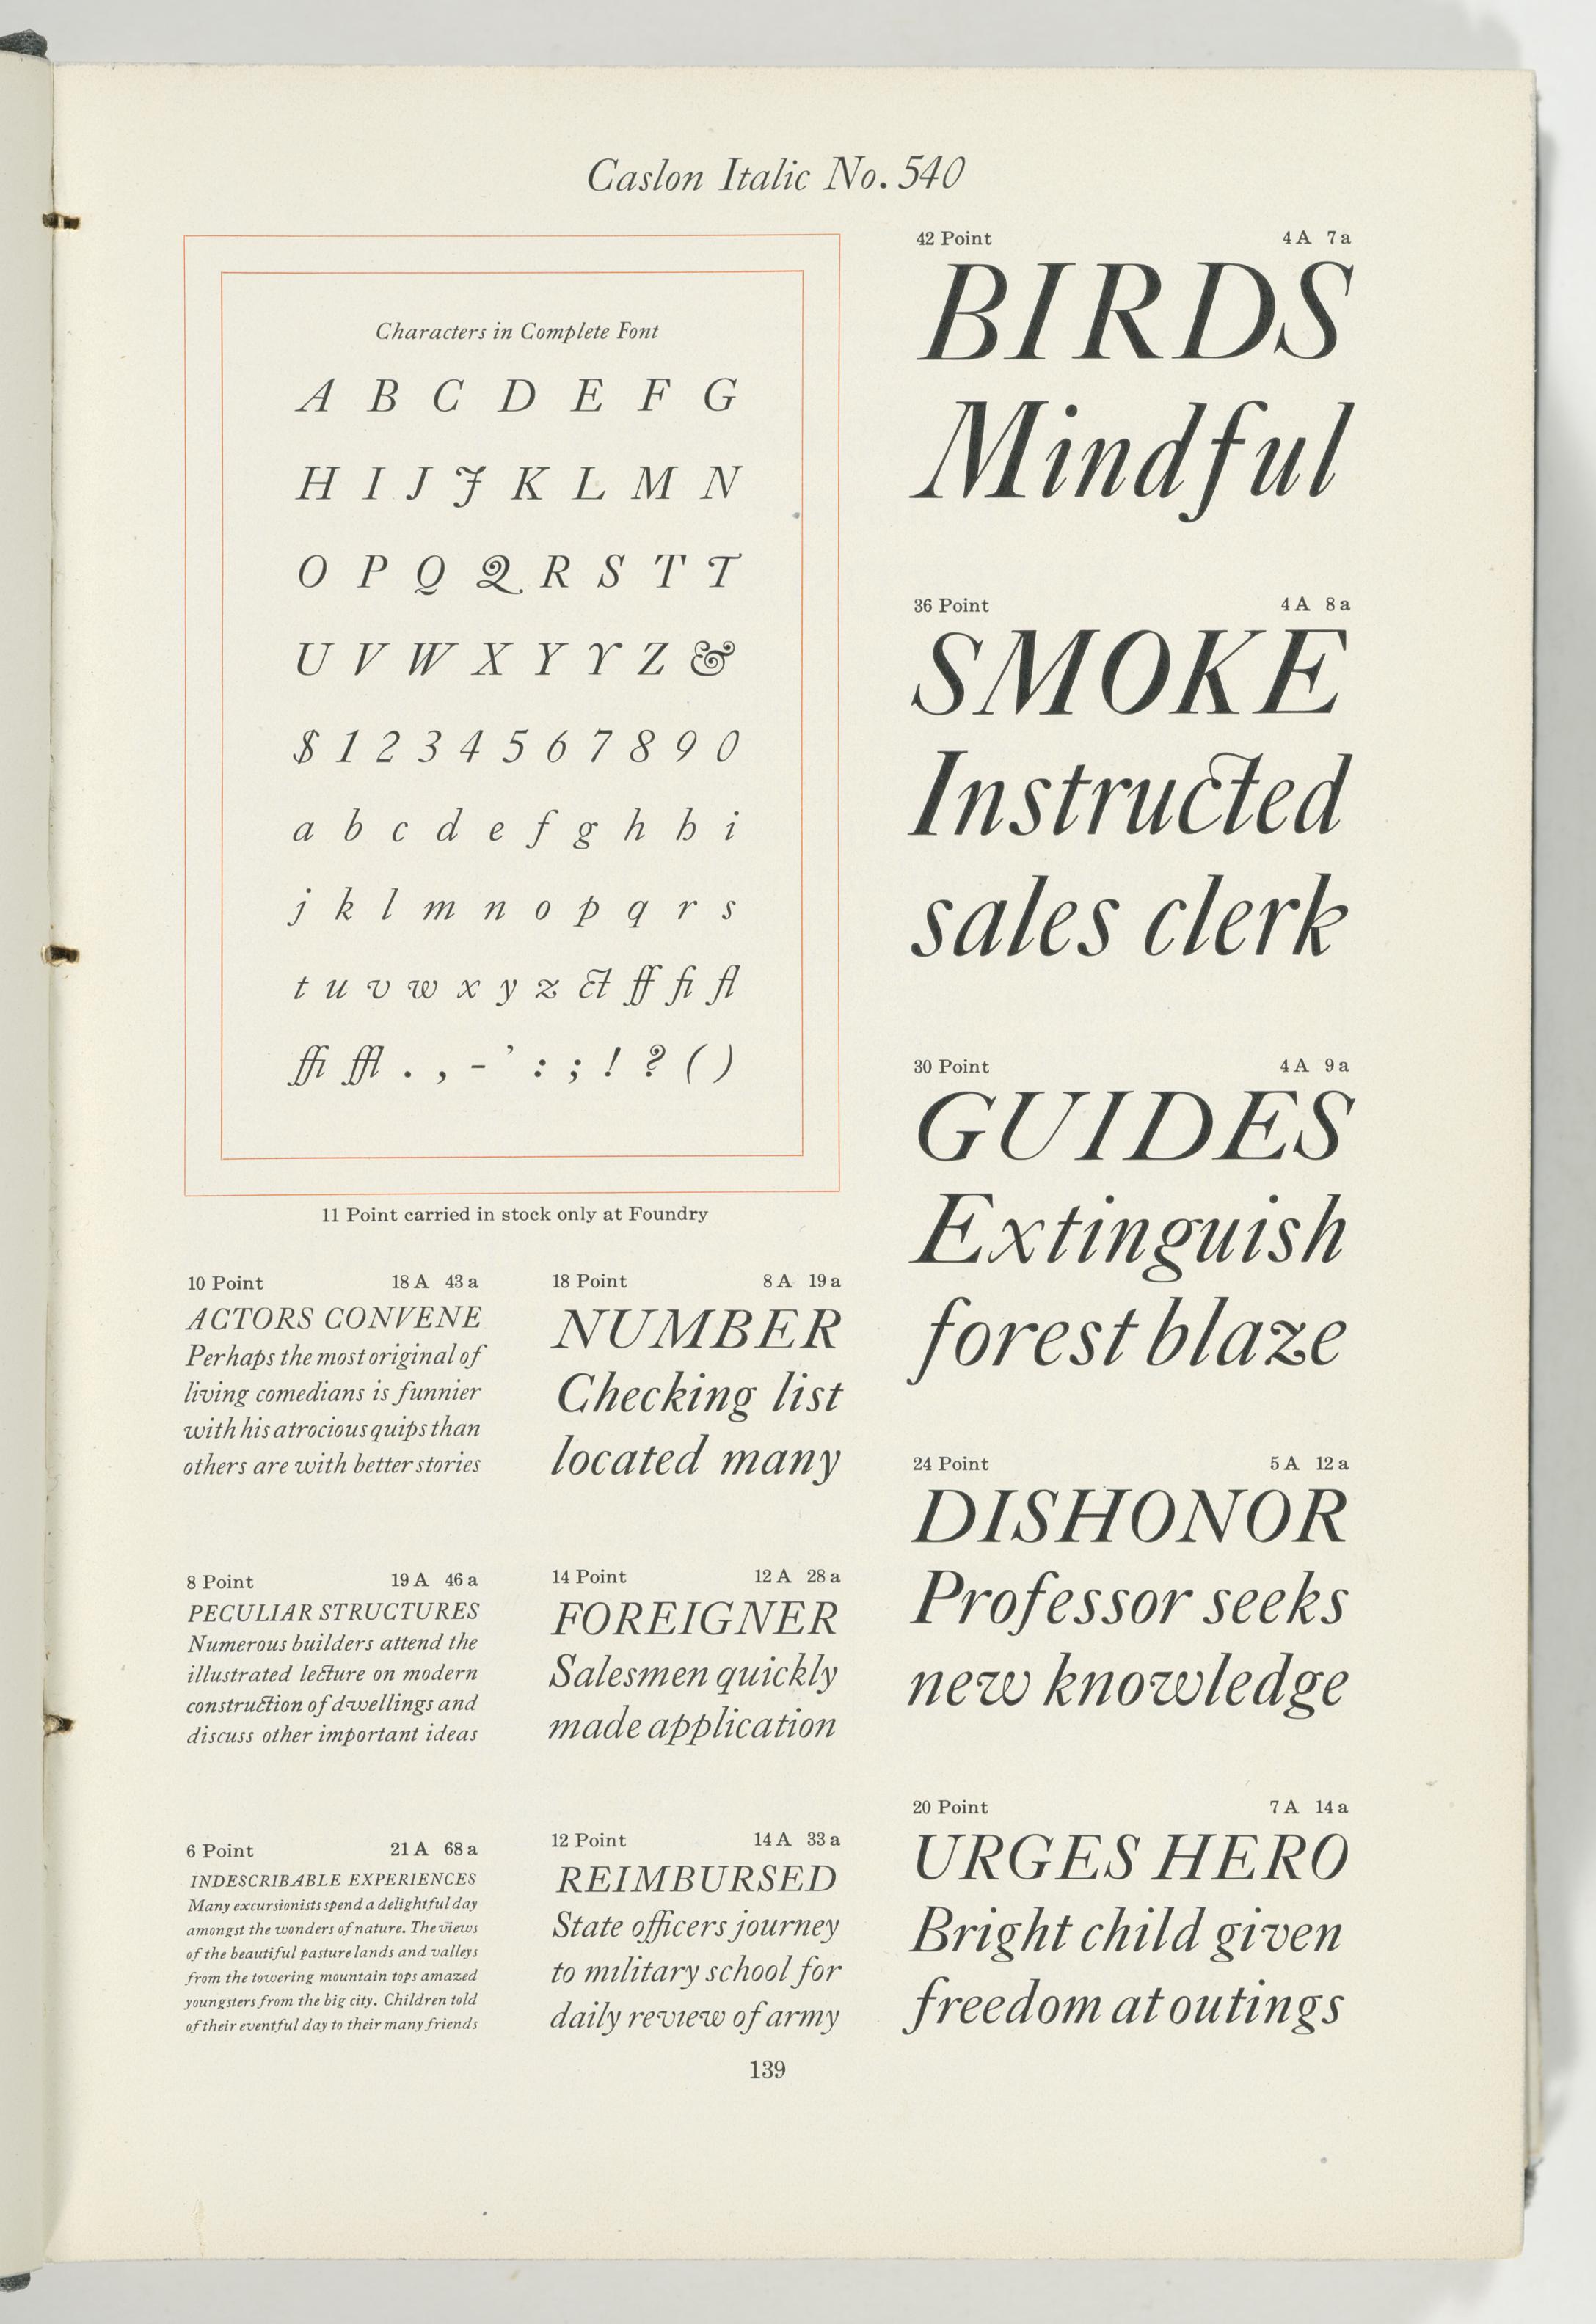 Caslon Italic No. 540
Characters in Complete Font
A B C D E F G
H I J J K L M N
O P Q Q R S T T
U V W X Y Y Z &
$ 1 2 3 4 5 6 7 8 9 0
a b c d e f g h h i
j k l m n o p q r s
t u v w x y z ct ff fi fl
ffi ffl . , - ’ : ; ! ? ( )
11 Point carried in stock only at Foundry
10 Point 18 A 43 a
ACTORS CONVENE
Perhaps the most original of
living comedians is funnier
with his atrocious quips than
others are with better stories
8 Point 19 A 46 a
PECULIAR STRUCTURES
Numerous builders attend the
illustrated lecture on modern
construction of dwellings and
discuss other important ideas
6 Point 21 A 68 a
INDESCRIBABLE EXPERIENCES
Many excursionists spend a delightful day
amongst the wonders of nature. The views
of the beautiful pasture lands and valleys
from the towering mountain tops amazed
youngsters from the big city. Children told
of their eventful day to their many friends
18 Point 8 A 19 a
NUMBER
Checking list
located many
14 Point 12 A 28 a
FOREIGNER
Salesmen quickly
made application
12 Point 14 A 33 a
REIMBURSED
State officers journey
to military school for
daily review of army
42 Point 4 A 7 a
BIRDS
Mindful
36 Point 4 A 8 a
SMOKE
Instructed
sales clerk
30 Point 4 A 9 a
GUIDES
Extinguish
forest blaze
24 Point 5 A 12 a
DISHONOR
Professor seeks
new knowledge
20 Point 7 A 14 a
URGES HERO
Bright child given
freedom at outings
139